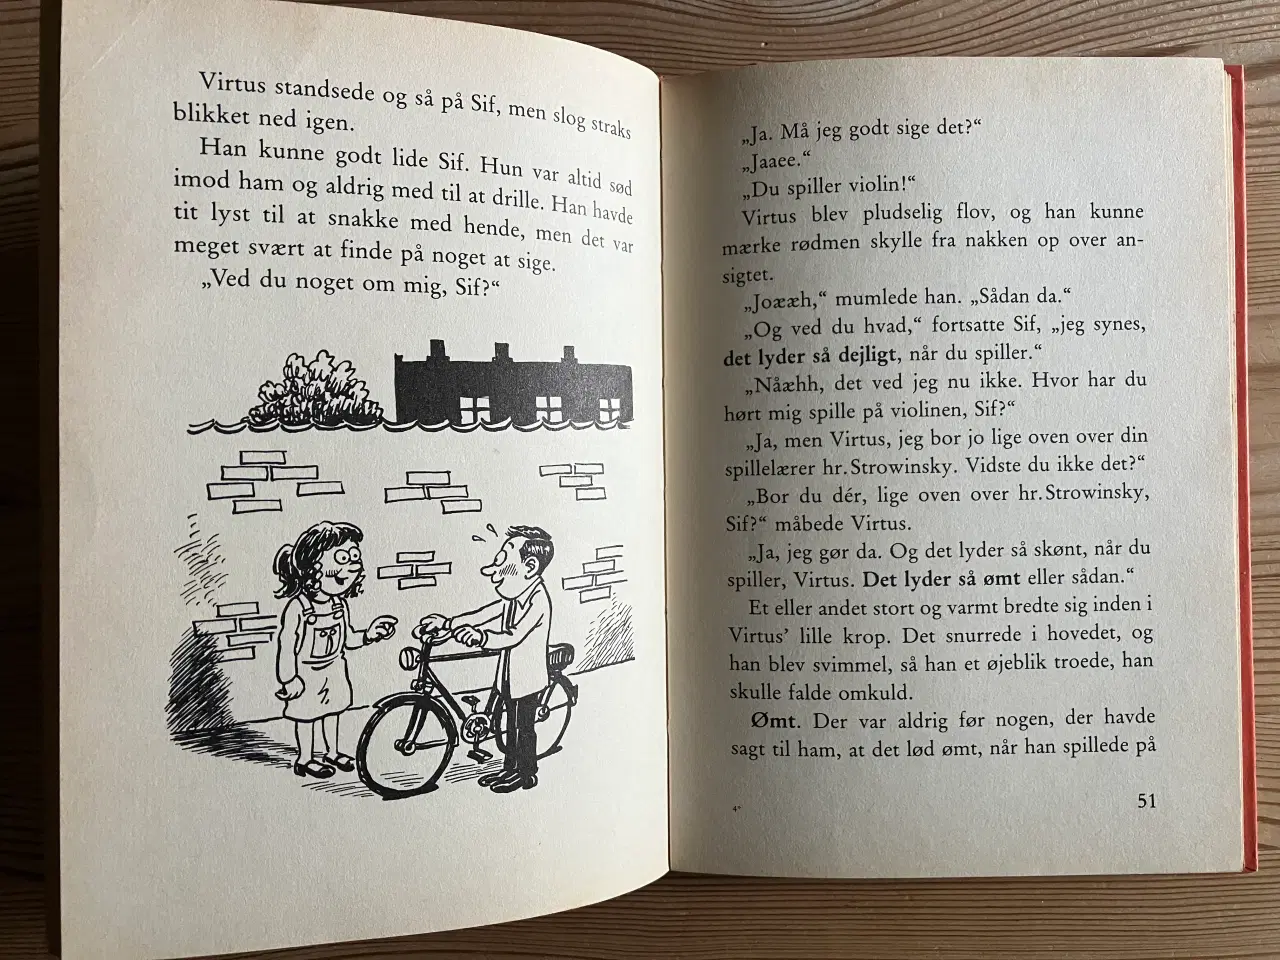 Virtus standsede og så på Sif, men slog straks
blikket ned igen.
Han kunne godt lide Sif. Hun var altid sød
imod ham og aldrig med til at drille. Han havde
tit lyst til at snakke med hende, men det var
meget svært at finde på noget at sige.
„Ved du noget om mig, Sif?“
„Ja. Må jeg godt sige det?“
„Jaaee.“
„Du spiller violin!“
Virtus blev pludselig flov, og han kunne
mærke rødmen skylle fra nakken op over an-
sigtet.
„Joææh,“ mumlede han. „Sådan da.“
„Og ved du hvad,“ fortsatte Sif, „jeg synes,
det lyder så dejligt, når du spiller.“
„Nåæhh, det ved jeg nu ikke. Hvor har du
hørt mig spille på violinen, Sif?“
„Ja, men Virtus, jeg bor jo lige oven over din
spillelærer hr. Strowinsky. Vidste du ikke det?“
„Bor du dér, lige oven over hr. Strowinsky,
Sif?“ måbede Virtus.
„Ja, jeg gør da. Og det lyder så skønt, når du
spiller, Virtus. Det lyder så ømt eller sådan.“
Et eller andet stort og varmt bredte sig inden i
Virtus’ lille krop. Det snurrede i hovedet, og
han blev svimmel, så han et øjeblik troede, han
skulle falde omkuld.
Ømt. Der var aldrig før nogen, der havde
sagt til ham, at det lød ømt, når han spillede på
4*
51